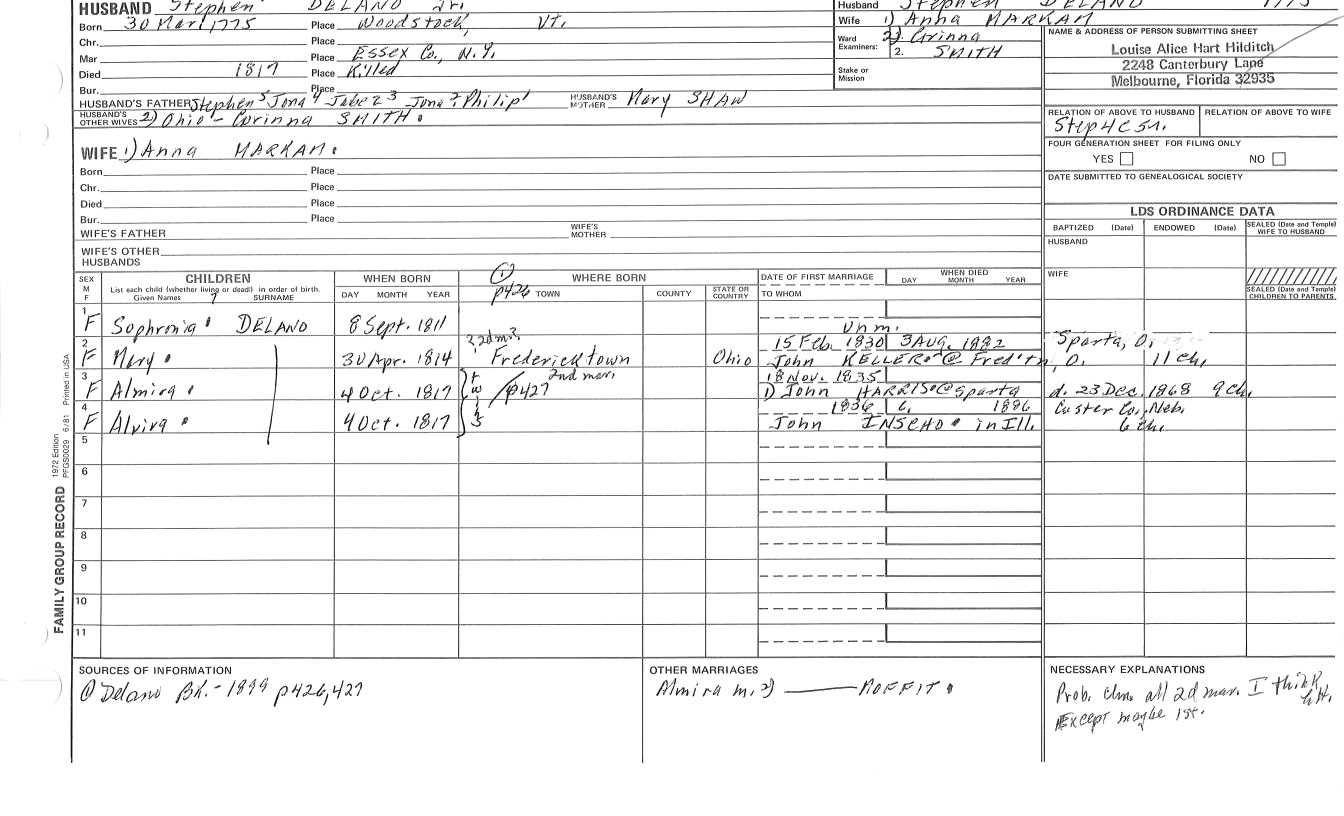 HUSBAND Stephen DELANO Jr. Husband Stephen DELANO 1775
Born 30 Mar 1775 Place Woodstock, Vt. Wife 1) Anna MARKAM
Chr. Place Ward 2) Corinna NAME & ADDRESS OF PERSON SUBMITTING SHEET
Mar Place Essex Co., N.Y. Examiners: 2. SMITH Louise Alice Hart Hilditch
Died 1817 Place Killed Stake or 2248 Canterbury Lane
Bur. Place Mission Melbourne, Florida 32935
HUSBAND'S FATHER Stephen 5 Jona 4 Jabez 3 Jona 2 Philip 1 HUSBAND'S MOTHER Mary SHAW
HUSBAND'S OTHER WIVES 2) Ohio - Corinna SMITH. RELATION OF ABOVE TO HUSBAND RELATION OF ABOVE TO WIFE
Step 4C5r.
WIFE 1) Anna MARKAM. FOUR GENERATION SHEET FOR FILING ONLY
YES NO
Born Place
Chr. Place DATE SUBMITTED TO GENEALOGICAL SOCIETY
Died Place
Bur. Place LDS ORDINANCE DATA
WIFE'S FATHER WIFE'S MOTHER BAPTIZED (Date) ENDOWED (Date) SEALED (Date and Temple) WIFE TO HUSBAND
WIFE'S OTHER HUSBANDS HUSBAND
SEX M F CHILDREN WHEN BORN 1 WHERE BORN DATE OF FIRST MARRIAGE WHEN DIED WIFE
List each child (whether living or dead) in order of birth. DAY MONTH YEAR p426 TOWN COUNTY STATE OR COUNTRY TO WHOM DAY MONTH YEAR SEALED (Date and Temple) CHILDREN TO PARENTS
Given Names SURNAME
1 F Sophronia DELANO 8 Sept. 1811 Unm.
2 2dm? 15 Feb. 1830 3 AUG. 1882 Sparta, O.
F Mary 30 Apr. 1814 Fredericktown Ohio John KELLER @ Fred'tn, O. 11 ch.
3 2nd mar. 18 Nov. 1835
F Almira 4 Oct. 1817 twins p427 1) John HARRIS @ Sparta d. 23 Dec. 1868 9 ch.
4 1836 1886 Custer Co., Neb.
F Alvira 4 Oct. 1817 John INSCHO in Ill. 6 ch.
5
6
7
8
9
10
11
FAMILY GROUP RECORD 1972 Edition PFGS0029 6/81 Printed in USA
SOURCES OF INFORMATION OTHER MARRIAGES NECESSARY EXPLANATIONS
1 Delano Bk. - 1899 p426,427 Almira m. 2) MOFFIT Prob. chn. all 2d mar. I think
Except maybe 1st.